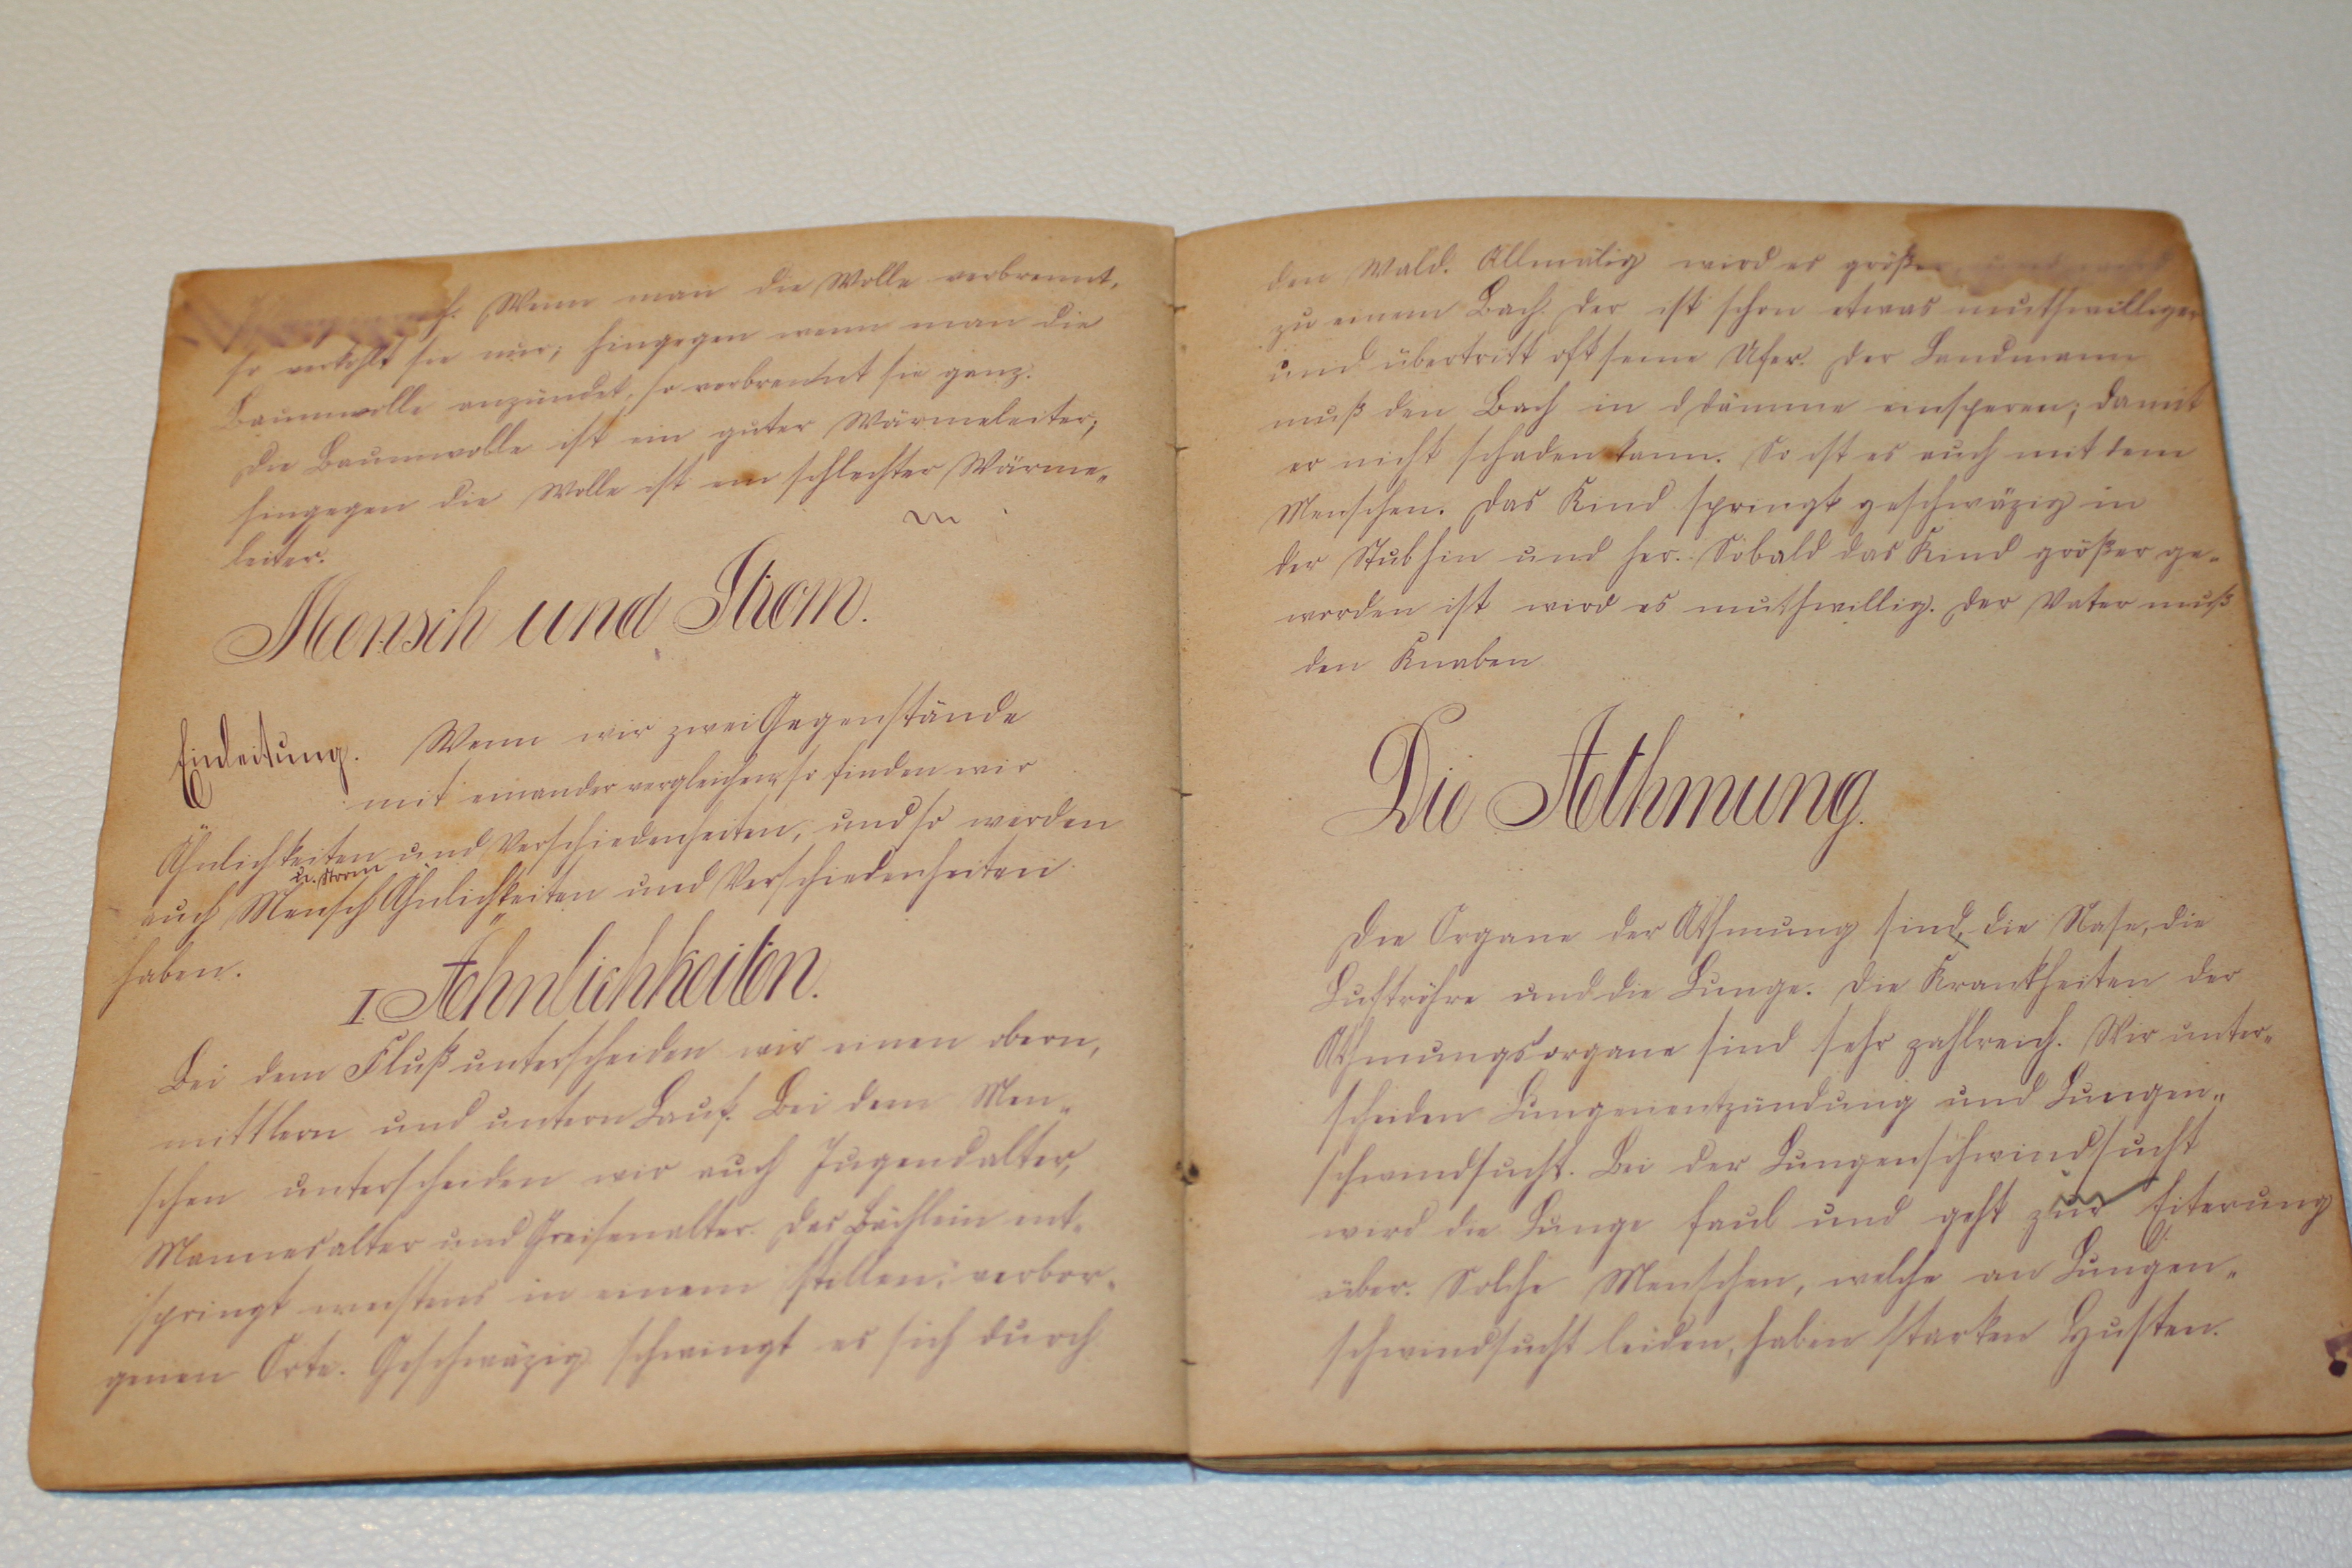 Wenn man die Wolle verbrennt,
so verkohlt sie nur; hingegen wenn man die
Baumwolle anzündet, so verbrennt sie ganz.
Die Baumwolle ist ein guter Wärmeleiter;
hingegen die Wolle ist ein schlechter Wärme„
leiter.
Mensch und Strom.
Einleitung. Wenn wir zwei Gegenstände
mit einander vergleichen so finden wir
Ähnlichkeiten und Verschiedenheiten, und so werden
u. Strom
auch Mensch Ähnlichkeiten und Verschiedenheiten
haben.
I Aehnlichkeiten.
Bei dem Fluß unterscheiden wir einen obern,
mittlern und untern Lauf. Bei dem Men„
schen unterscheiden wir auch Jugendalter,
Mannesalter und Greisenalter. Das Bächlein ent„
springt meistens in einem stillen, verbor„
genen Orte. Geschwäzig schwingt es sich durch
den Wald. Allmälig wird es größer und wird
zu einem Bach. Der ist schon etwas muthwilliger
und übertritt oft seine Ufer. Der Landmann
muß den Bach in Ddämme einsperen; damit
er nicht schaden kann. So ist es auch mit dem
Menschen. Das Kind springt geschwäzig in
der Stub hin und her. Sobald das Kind größer ge„
worden ist wird es muthwillig. Der Vater muß
den Knaben
Die Aethmung.
Die Organe der Athmung sind, die Nase, die
Luftröhre und die Lunge. Die Krankheiten der
Athmungsorgane sind sehr zahlreich. Wir unter„
scheiden Lungenentzündung und Lungen„
schwindsucht. Bei der Lungenschwindsucht
wird die Lunge faul und geht zur Eiterung
über. Solche Menschen, welche an Lungen„
schwindsucht leiden, haben starken Husten.